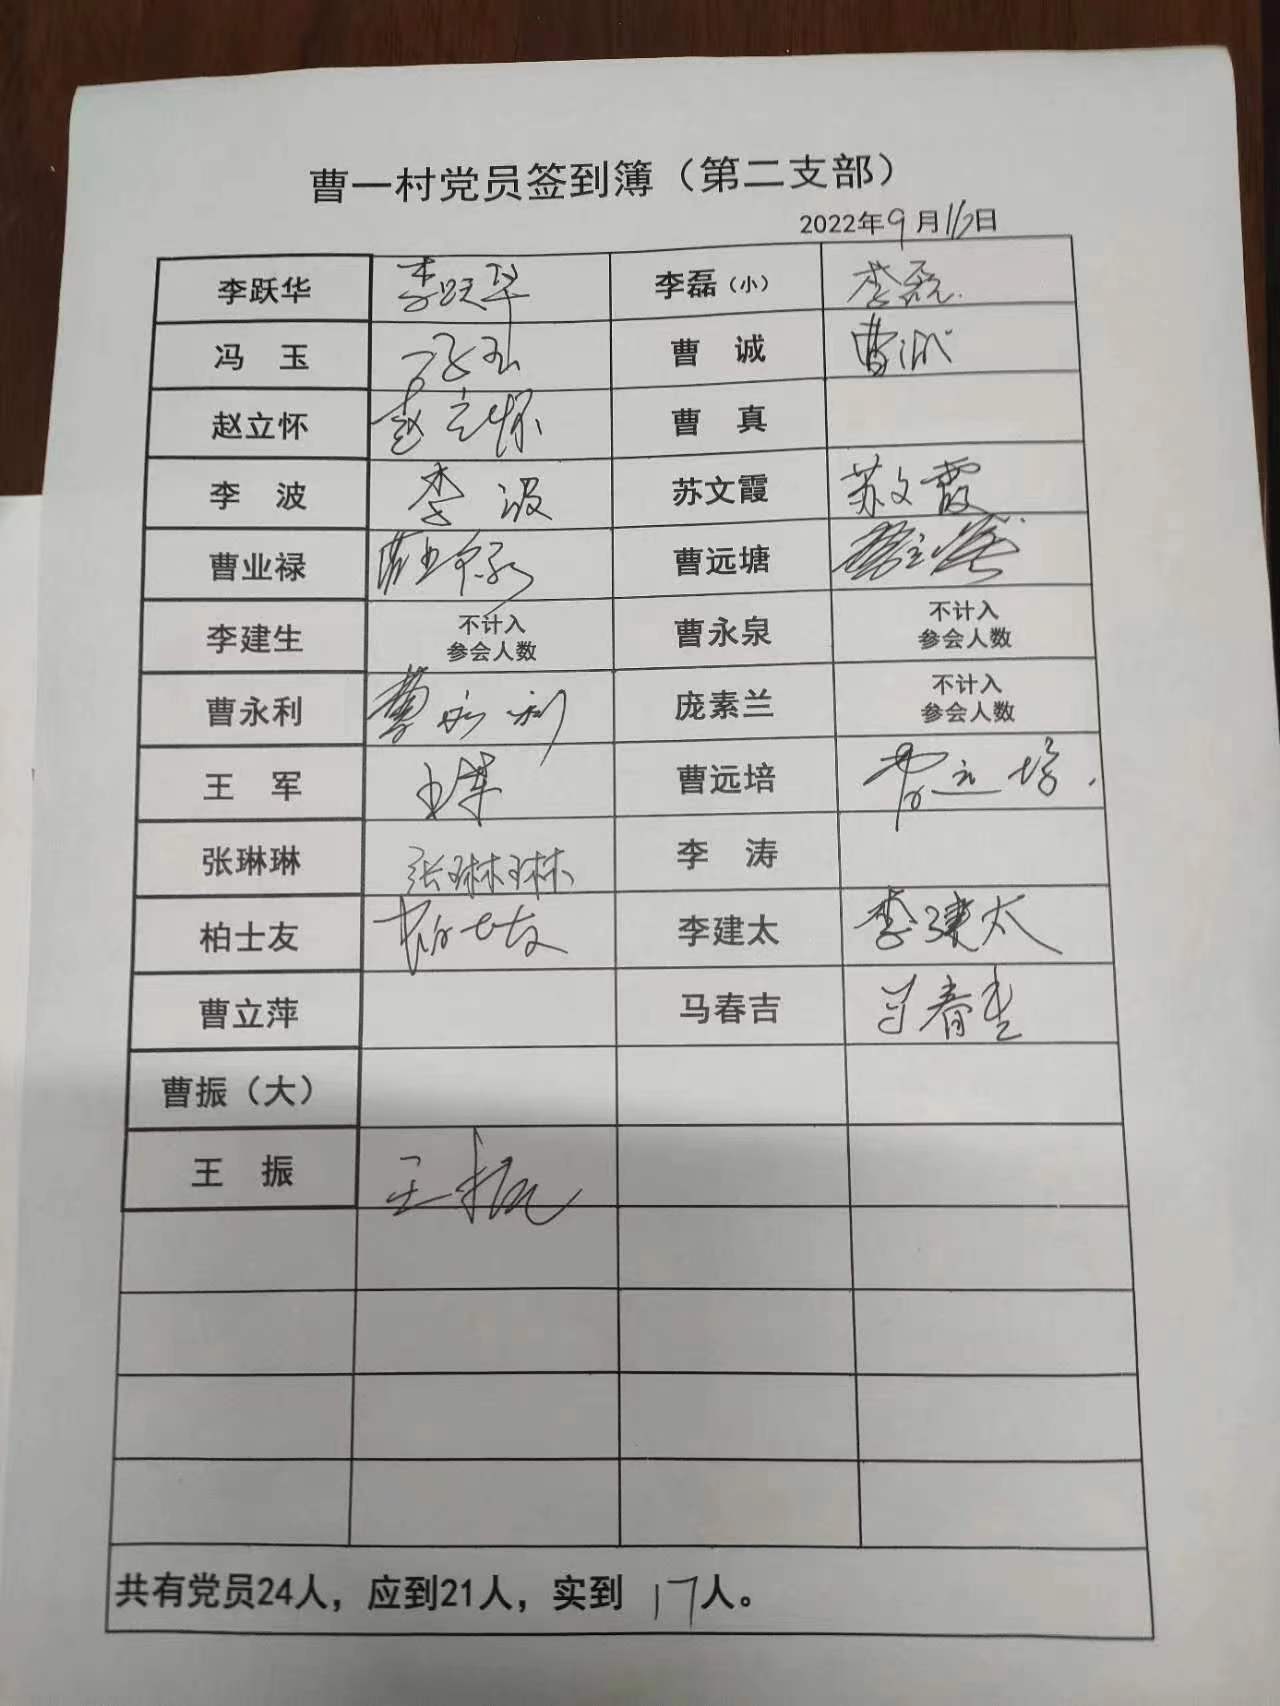 曹一村党员签到簿（第二支部）
2022年9月 日
李跃华 李跃华 李磊（小） 李磊
冯 玉 冯玉 曹 诚 曹诚
赵立怀 赵立怀 曹 真
李 波 李波 苏文霞 苏文霞
曹业禄 曹业禄 曹远塘
李建生 不计入 曹永泉 不计入
参会人数 参会人数
曹永利 曹永利 庞素兰 不计入
参会人数
王 军 王军 曹远培 曹远培
张琳琳 张琳琳 李 涛
柏士友 柏士友 李建太 李建太
曹立萍 马春吉 马春吉
曹振（大）
王 振 王振
共有党员24人，应到21人，实到 17人。